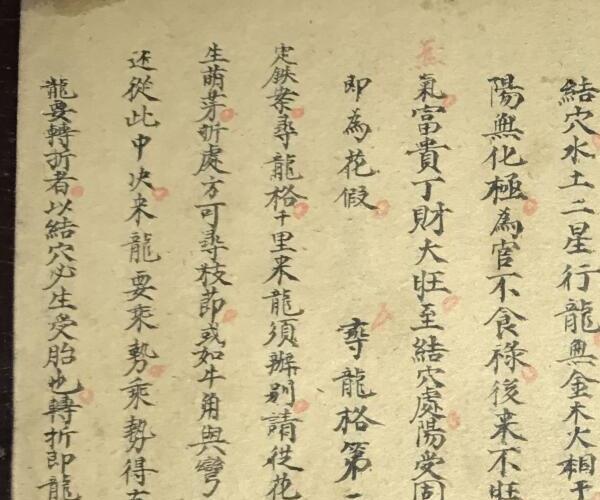 結穴水土二星行龍無金木火相
陽無化極為官不食祿後來不旺
氣富貴丁財大旺至結穴處陽受
即為花假 尋龍格第
定鉄案尋龍格千里来龍須辦别請從花
生萌芽折處方可尋枝節或如牛角與彎
还從此中决来龍要乘勢乘勢得
龍要轉折者以結穴必生受胎也轉折即龍